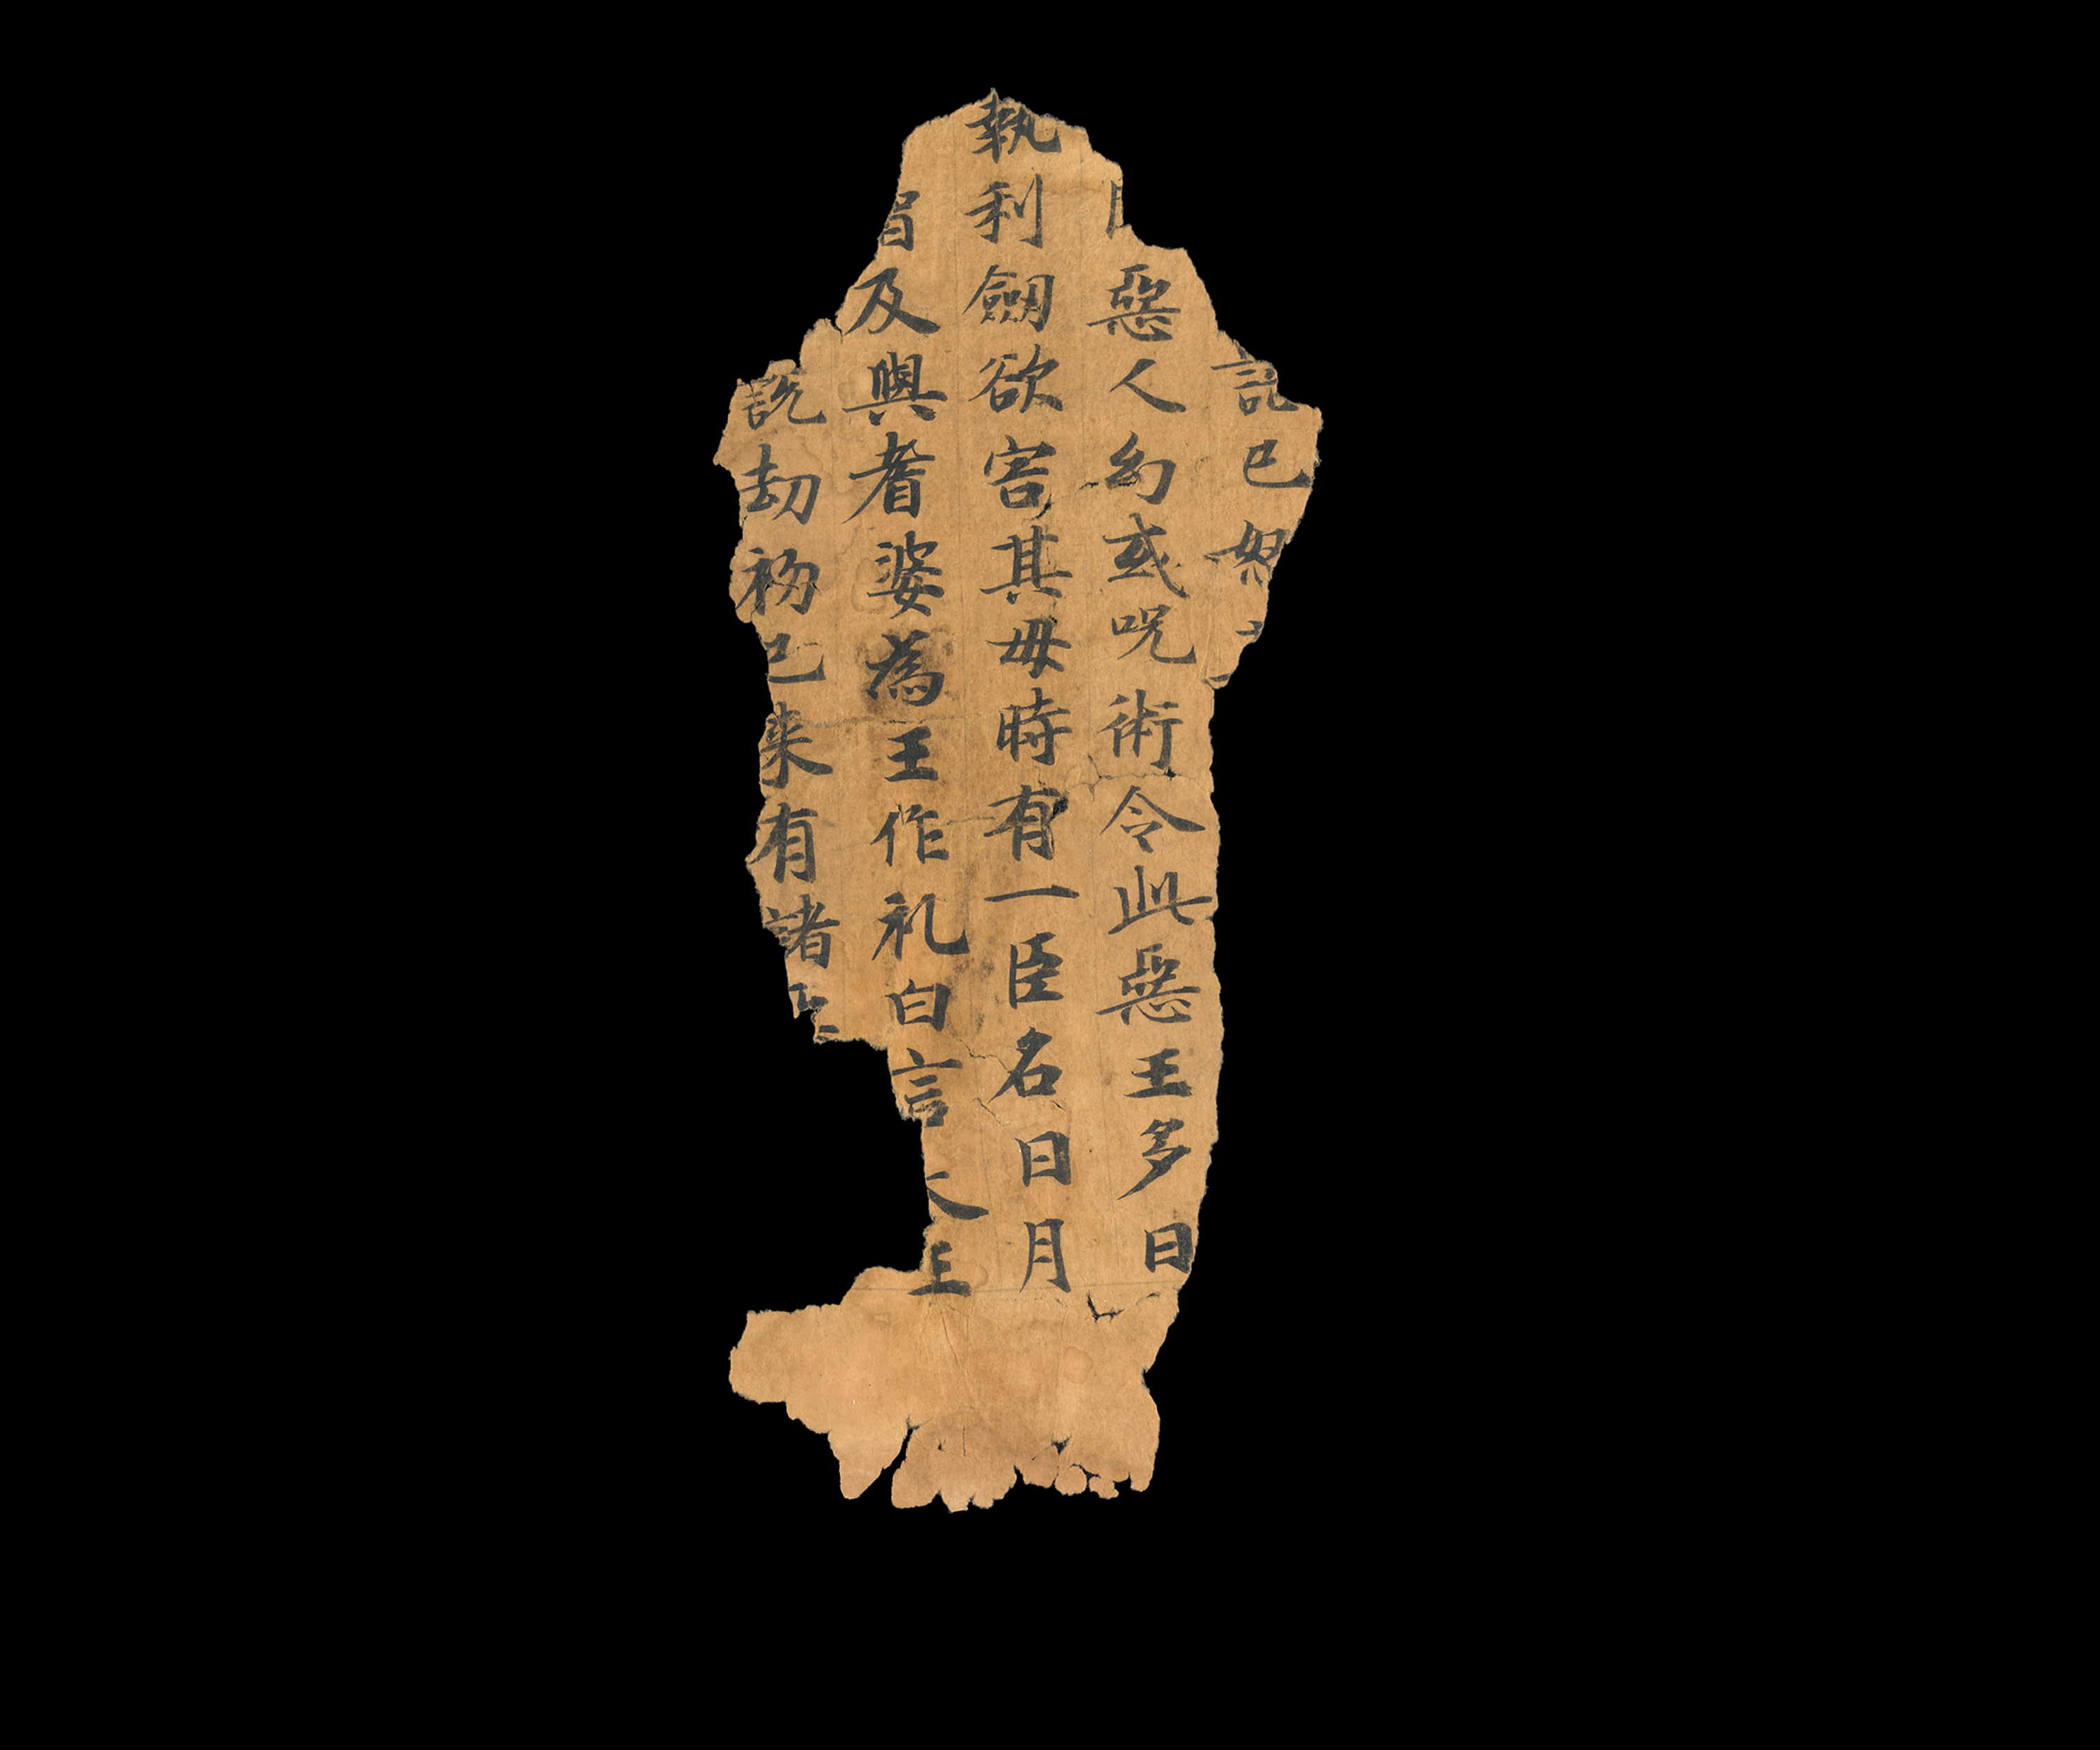 說已怒
惡人幻或呪術令此惡王多日
執利劒欲害其母時有一臣名曰月
及與耆婆為王作礼白言大王
說劫初已来有諸惡